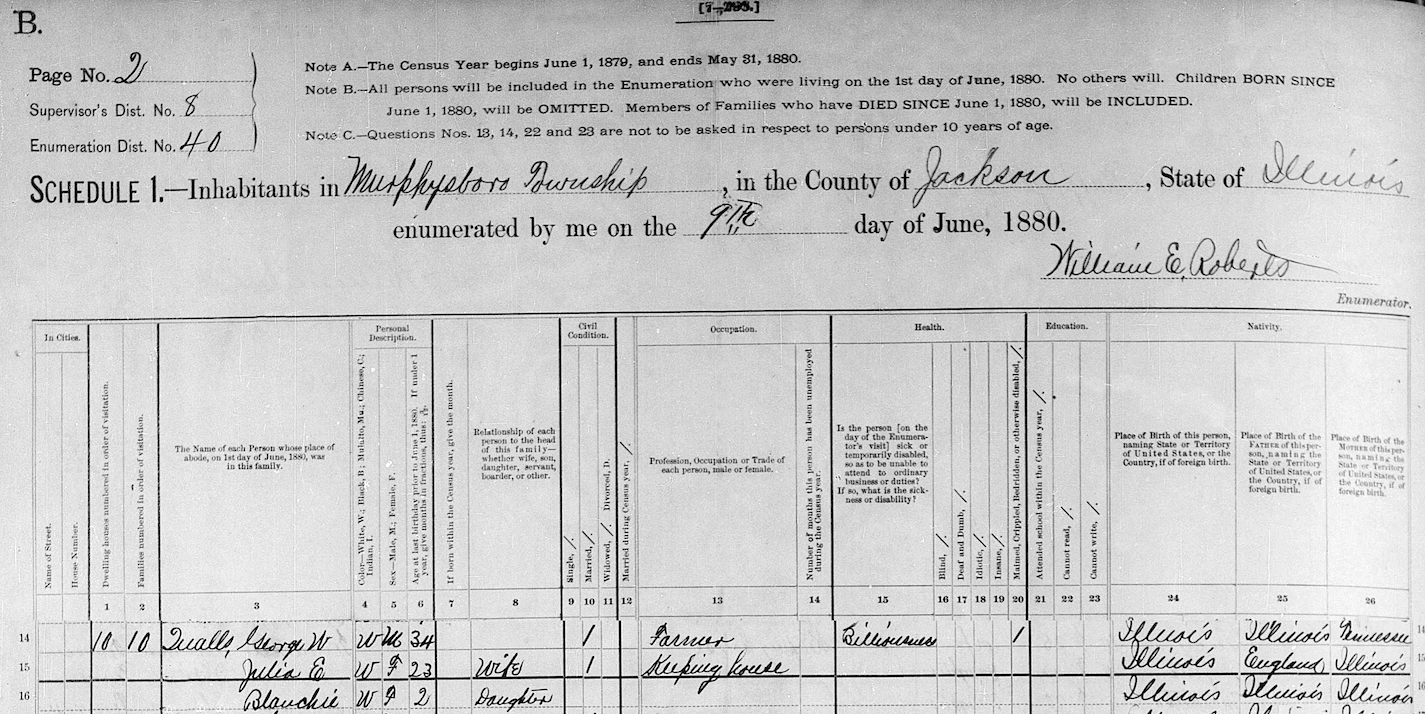 B.
Page No. 2
Supervisor's Dist. No. 8
Enumeration Dist. No. 40
Note A.—The Census Year begins June 1, 1879, and ends May 31, 1880.
Note B.—All persons will be included in the Enumeration who were living on the 1st day of June, 1880. No others will. Children BORN SINCE
June 1, 1880, will be OMITTED. Members of Families who have DIED SINCE June 1, 1880, will be INCLUDED.
Note C.—Questions Nos. 13, 14, 22 and 23 are not to be asked in respect to persons under 10 years of age.
SCHEDULE 1.—Inhabitants in Murphysboro Township, in the County of Jackson, State of Illinois
enumerated by me on the 9th day of June, 1880.
William E. Roberts
Enumerator.
In Cities.
Personal
Description.
Civil
Condition.
Occupation.
Health.
Education.
Nativity.
Name of Street.
House Number.
Dwelling houses numbered in order of visitation.
Families numbered in order of visitation.
The Name of each Person whose place of
abode, on 1st day of June, 1880, was
in this family.
Color—White, W.; Black, B; Mulatto, Mu.; Chinese, C.;
Indian, I.
Sex—Male, M.; Female, F.
Age at last birthday prior to June 1, 1880. If under 1
year, give months in fractions, thus:
If born within the Census year, give the month.
Relationship of each
person to the head
of this family—
whether wife, son,
daughter, servant,
boarder, or other.
Single, /.
Married, /.
Widowed, /. Divorced, D.
Married during Census year, /.
Profession, Occupation or Trade of
each person, male or female.
Number of months this person has been unemployed
during the Census year.
Is the person [on the
day of the Enumera-
tor's visit] sick or
temporarily disabled,
so as to be unable to
attend to ordinary
business or duties?
If so, what is the sick-
ness or disability?
Blind, /.
Deaf and Dumb, /.
Idiotic, /.
Insane, /.
Maimed, Crippled, Bedridden, or otherwise disabled, /.
Attended school within the Census year, /.
Cannot read, /.
Cannot write, /.
Place of Birth of this person,
naming State or Territory
of United States, or the
Country, if of foreign birth.
Place of Birth of the
FATHER of this per-
son, naming the
State or Territory
of United States, or
the Country, if of
foreign birth.
Place of Birth of the
MOTHER of this per-
son, naming the
State or Territory
of United States, or
the Country, if of
foreign birth.
1 2 3 4 5 6 7 8 9 10 11 12 13 14 15 16 17 18 19 20 21 22 23 24 25 26
14 10 10 Qualls, George W W M 34 1 Farmer Billiousness 1 Illinois Illinois Tennessee 14
15 Julia E W F 23 Wife 1 Keeping house Illinois England Illinois 15
16 Blanchie W F 2 Daughter Illinois Illinois Illinois 16